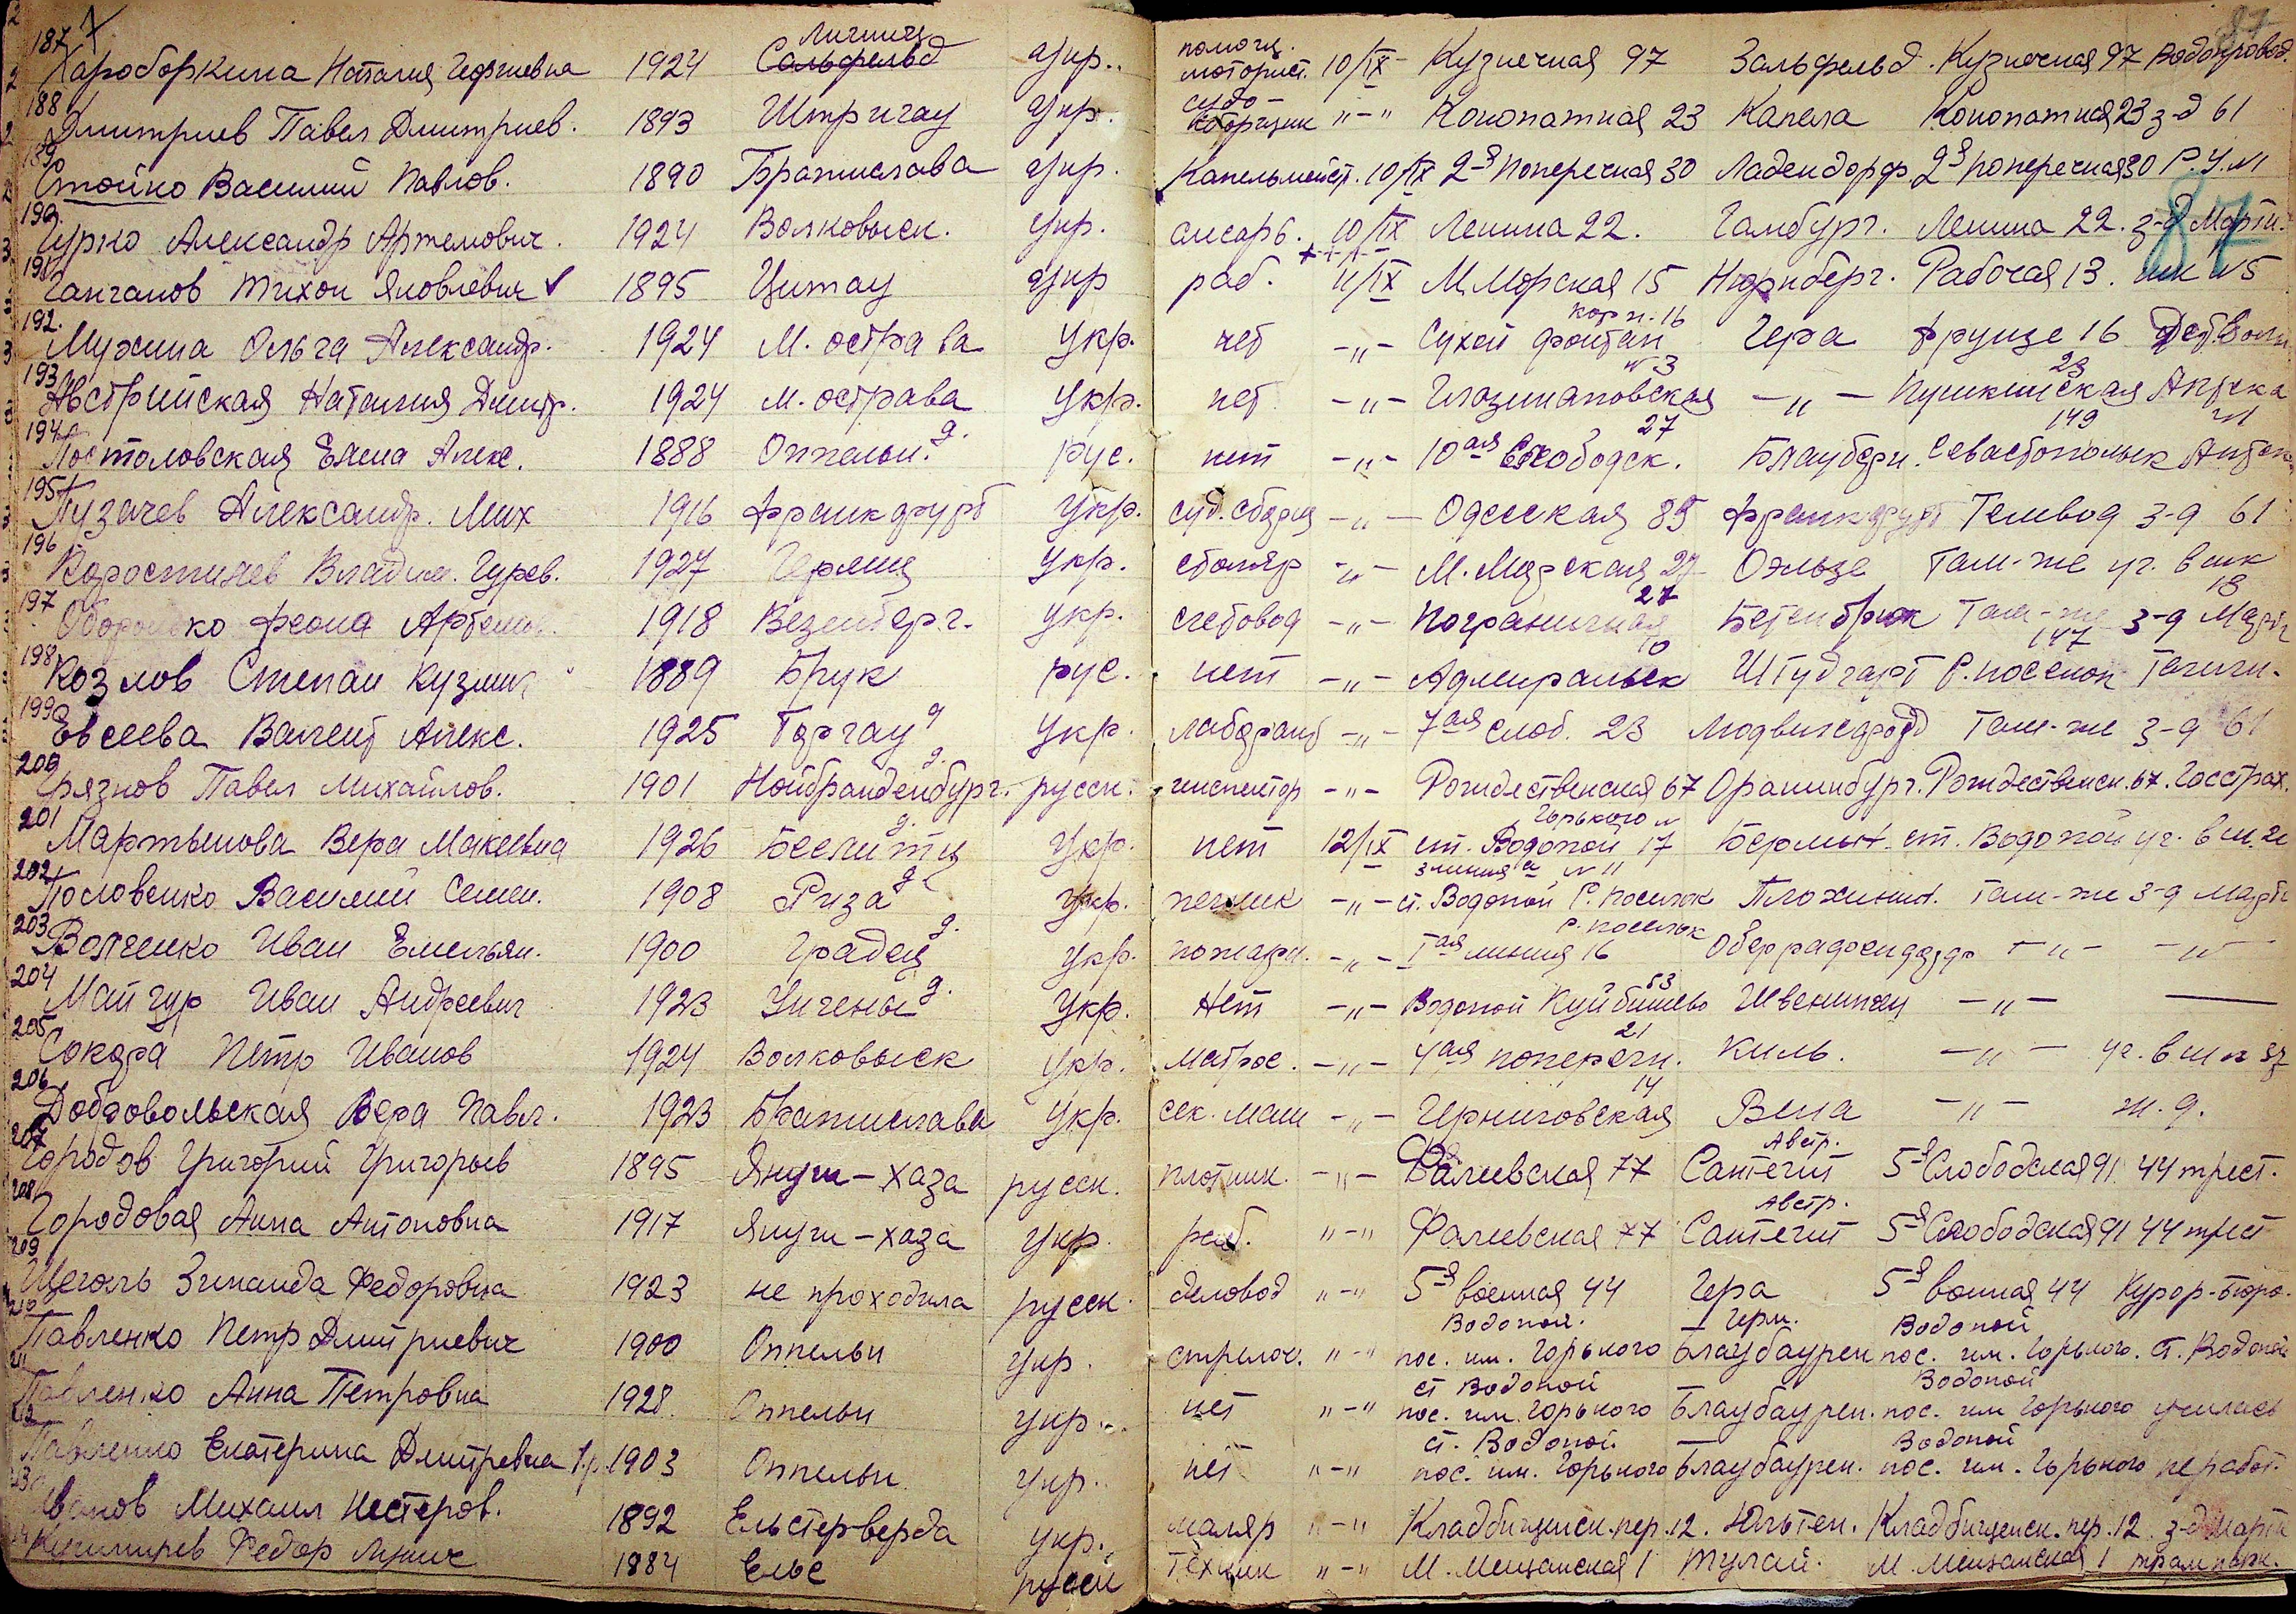 87
187 Хароборкина Наталия Георгиевна 1924 Лигниц Сальфельд укр. помощ. моторист. 10/IX Кузнечная 97 Зальфельд. Кузнечная 97 Водопровод.
188 Дмитриев Павел Дмитриев. 1893 Штригау укр. судосборщик "-" Конопатная 23 Капела Конопатная 23 з-д 61
189 Стойко Василий Павлов. 1890 Братислава укр. Капельмейст. 10/IX 2-я Поперечная 30 Ладендорф. 2-я поперечная 30 Р.У.М
190 Гурко Александр Артемович. 1924 Волковыск. укр. слесарь. 10/IX Ленина 22. Гамбург. Ленина 22. з-д Марти.
87
191 Ганганов Тихон Яковлевич 1895 Цитау укр раб. 11/IX М.Морская 15 Нюрнберг. Рабочая 13. шк №5
192. Мухина Ольга Александр. 1924 М. острава Укр. нет -"- Сухой фонтан корп. 16 Гера Фрунзе 16
193 Австрийская Наталия Дмитр. 1924 М. острава Укр. нет -"- №3 -"- Пушкинская 23 Аптека
194 Постоловская Елена Алекс. 1888 Оппельн. г. рус. нет -"- 10ая Слободск. 27 Блаубери. Севастопольск 149
195 Пузачев Александр. Мих 1916 Франкфурт Укр. суд. сборщ -"- Одесская 85 Франкфурт Темвод з-д 61
196 Коростинев Владим. Гурев. 1927 Герлиц Укр. столяр -"- М. Морская 27 Оэльзе Там-же уч. в шк 18
197 Оборонько Феона Артемов. 1918 Везенберг. укр. счетовод -"- Пограничная 27 Бетенбрюк Там-же з-д Марти
198 Козлов Степан Кузмич 1889 Брук рус. нет -"- Адмиральск 10 Штудгарт Р. поселок 147
199 Евсеева Валент Алекс. 1925 Торгау г Укр. лаборант -"- 7ая слоб. 23 Людвигсфорд Там-же з-д 61
200 Грязнов Павел Михайлов. 1901 Нойбранденбург г. русск. инспектор -"- Рождественская 67 Ораниенбург. Рождественск. 67. Госстрах.
201 Мартынова Вера Макеевна 1926 Беслитц г. Укр. нет 12/IX ст. Водопой Горького № 17 Берлин. ст. Водопой уч. в ш. 21
202 Половенко Василий Семен. 1908 Риза г. Укр. печник -"- ст. Водопой 3 линия № 11 Р. поселок Плохинин. Там-же з-д Марти
203 Волченко Иван Емельян. 1900 Градец г. Укр. пожарн. -"- Iая линия 16 Р. поселок -"- -"-
204 Майгур Иван Андреевич 1923 Учены г. Укр. Нет -"- Водопой Куйбишево 53 Швенинген -"- —
205 Сокора Петр Иванов 1924 Волковыск Укр. матрос. -"- 4ая поперечн. 21 Киль. -"-
206 Добровольская Вера Павл. 1923 Братислава Укр. сек. маш -"- Черниговская 14 Вена -"- ж. д.
207 Городов Григорий Григорьев 1895 Януш-хаза русск. плотник. -"- Фалеевская 77 Сантегит Австр. 5-я Слободская 91 44 трест.
208 Городовая Анна Антоновна 1917 Януш-хаза укр. раб. "-" Фалеевская 77 Сантегит Австр. 5-я Слободская 91 44 трест
209 Щеголь Зинаида Федоровна 1923 не проходила русск. деловод "-" 5-я военная 44 Гера 5-я военная 44 Курор-бюро.
210 Павленко Петр Дмитриевич 1900 Оппельн укр. стрелоч. "-" Водопой. пос. им. Горького Герм. Блаубаурен Водопой пос. им. Горького. ст. Водопой
211 Павленко Анна Петровна 1928 Оппельн укр. нет "-" ст Водопой пос. им. Горького Блаубаурен. Водопой пос. им Горького училась
212 Павленко Екатерина Дмитревна 1903 Оппельн укр. нет "-" ст. Водопой пос. им. Горького Блаубаурен. Водопой пос. им. Горького не работ.
213 Иванов Михаил Нестеров. 1892 Ельстерверда укр. маляр "-" Кладбищенск. пер. 12. Юльтен. Кладбищенск. пер. 12 з-д Марти
Федор Лукич 1884 Ельс русск техник "-" М. Мещанская 1 Тулай. М. Мещанская 1 трам парк.